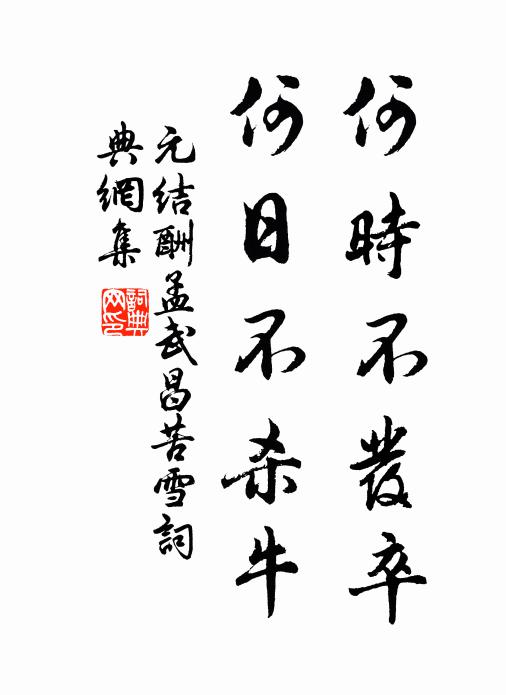 何時不發卒
何日不杀牛
元结酬孟武昌苦雪詞
典網集
詞典網印